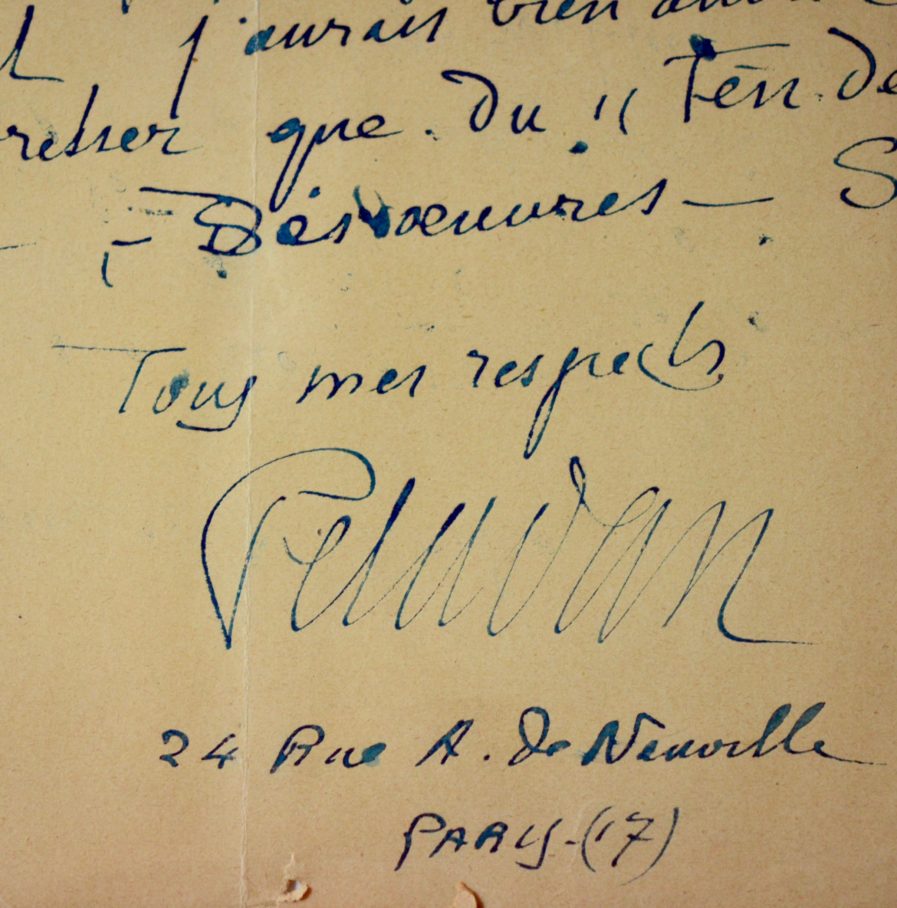 j'aurais bien
que. Du " Ten. de
- Désœuvres - S
Tous mes respects
Peladan
24 Rue A. de Neuville
PARIS-(17)